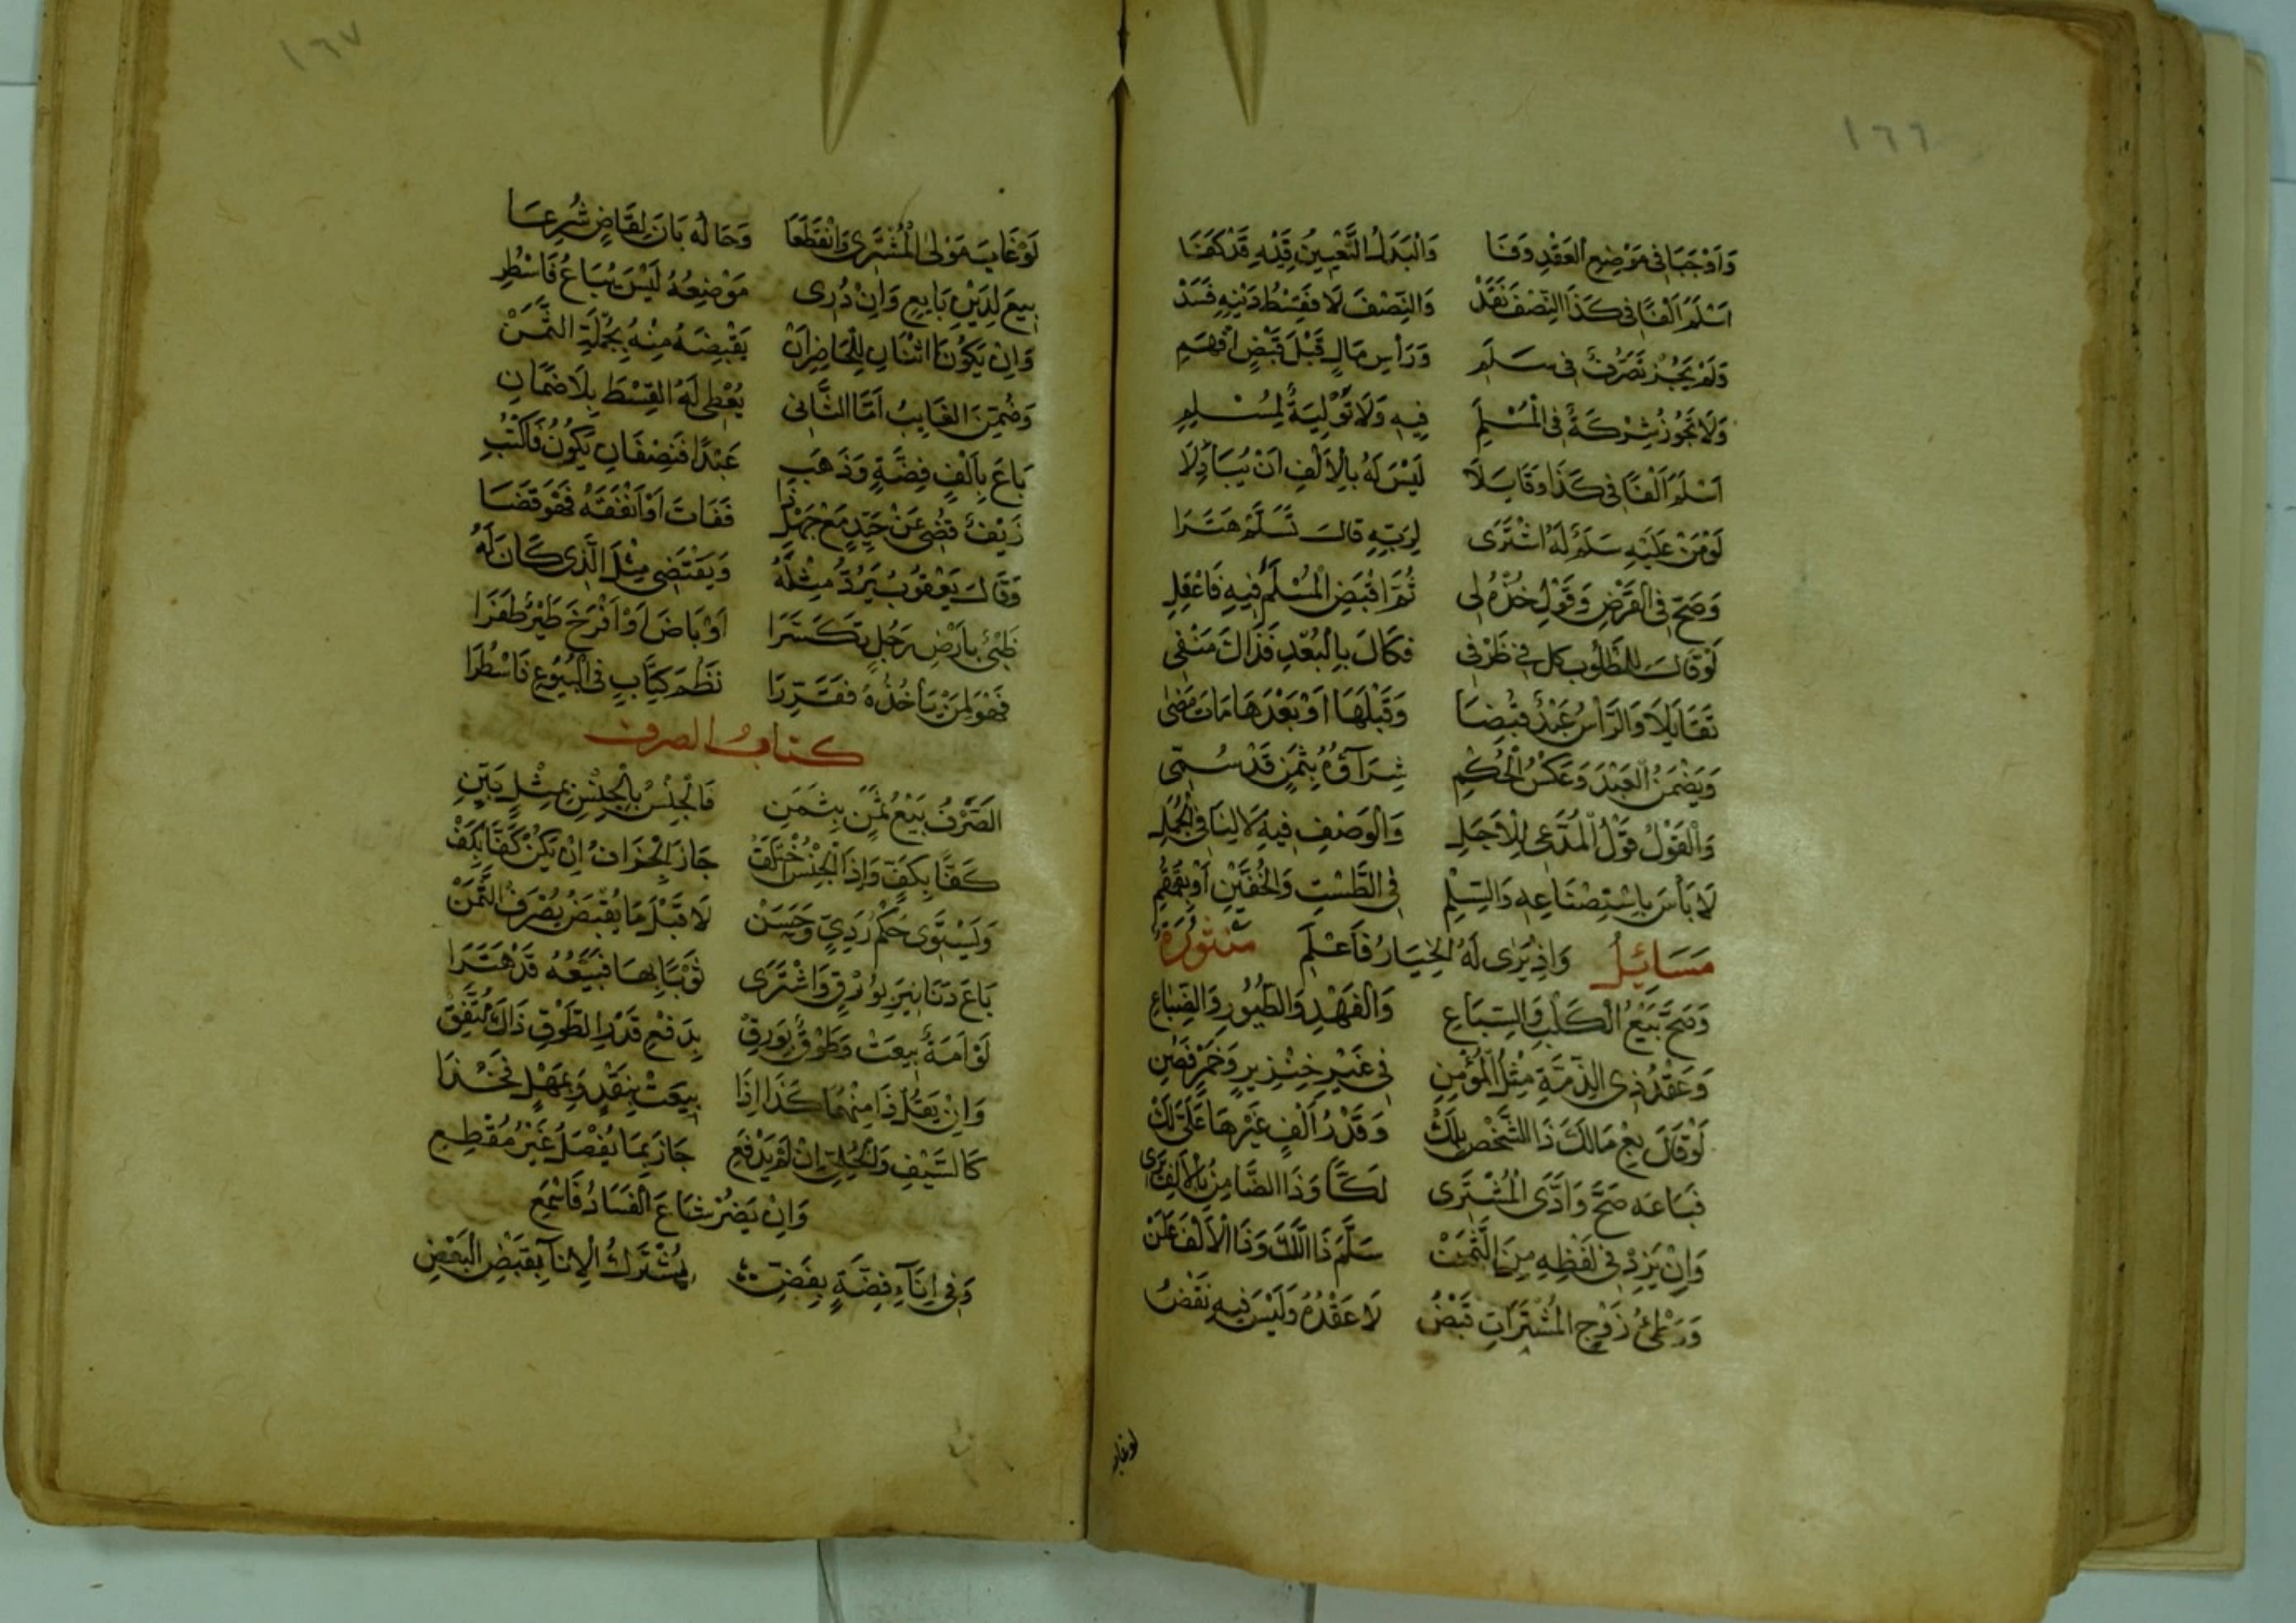 ١٦٦
وَاَوْجَبَا فِى مَوْضِعِ الْعَقْدِ وَفَا وَالْبَدَلُ التَّعْيِينُ فِيْهِ قَدْ كَفَا
اَسْلَمَ اَلْفًا فِى كَذَا النِّصْفَ نَقَدْ وَالنِّصْفَ لَا فَقِسْطُ دَيْنِهِ فَسَدْ
وَلَمْ يَجُزْ تَصَرُّفٌ فِى سَلَمِ وَرَأْسِ مَالٍ قَبْلَ قَبْضٍ اِفْهَمِ
وَلَا تَجُوزُ شِرْكَةٌ فِى الْمُسْلَمِ فِيهِ وَلَا تَوْلِيَةٌ لِمُسْلِمِ
اَسْلَمَ اَلْفًا فِى كَذَا وَقَايَلَا لَيْسَ لَهُ بِالْاَلْفِ اَنْ يُبَادِلَا
لَوْ مَنْ عَلَيْهِ سَلَمٌ لَهُ اشْتَرَى لِرَبِّهِ قَالَ تَسَلَّمْ هَتَرَا
وَصَحَّ فِى الْقَرْضِ وَقَوْلِ خُذْهُ لِى ثُمَّ اقْبِضِ الْمُسْلَمَ فِيهِ فَاعْقِلِ
لَوْ قَالَ لِلْمَطْلُوبِ كِلْ فِى ظَرْفِى فَكَالَ بِالْبُعْدِ فَذَاكَ مَنْفِى
تَقَايَلَا وَالرَّأْسُ عَبْدٌ قُبِضَا وَقَبْلَهَا اَوْ بَعْدَهَا مَاتَ مَضَى
وَيَضْمَنُ الْعَبْدَ وَعَكْسُ الْحُكْمِ شِرَآؤُهُ بِثَمَنٍ قَدْ سُمِّى
وَالْقَوْلُ قَوْلُ الْمُدَّعِى لِلْاَجَلِ وَالْوَصْفِ فِيهِ لَا لِنَافِى الْجُمَلِ
لَا بَأْسَ بِاسْتِصْنَاعِهِ وَالسَّلَمِ فِى الطَّسْتِ وَالْخُفَّيْنِ اَوْ بِقُمْقُمِ
مَسَائِلُ وَاِذْ يُرَى لَهُ الْخِيَارُ فَاعْلَمِ مَنْثُورَةٌ
وَصَحَّ بَيْعُ الْكَلْبِ وَالسِّبَاعِ وَالْفَهْدِ وَالطُّيُورِ وَالضِّبَاعِ
وَعَقْدُ ذِى الذِّمَّةِ مِثْلُ الْمُؤْمِنِ فِى غَيْرِ خِنْزِيرٍ وَخَمْرٍ
لَوْ قَالَ بِعْ مَالَكَ ذَا لِلشَّخْصِ بِلَكْ وَقَدْرُ اَلْفٍ غَيْرِهَا عَلَىَّ لَكْ
فَبَاعَهُ صَحَّ وَاَدَّى الْمُشْتَرِى لَكًّا وَذَا الضَّامِنُ بِالْاَلْفِ
وَاِنْ يَزِدْ فِى لَفْظِهِ مِنَ الثَّمَنْ سَلَّمَ ذَا اللَّكَّ وَذَا الْاَلْفَ عَلَنْ
وَوَطْئُ زَوْجِ الْمُشْتَرَاتِ قَبْضُ لَا عَقْدُهُ وَلَيْسَ فِيهِ نَقْضُ
لو غاب
١٦٧
لَوْ غَابَ مَوْلَى الْمُشْتَرِى وَانْقَطَعَا وَحَالُهُ بَانَ لِقَاضٍ شُرِعَا
بِيعَ لِدَيْنِ بَايِعٍ وَاِنْ دُرِى مَوْضِعُهُ لَيْسَ يُبَاعُ فَاسْطُرِ
وَاِنْ يَكُونَا اثْنَانِ لِلْحَاضِرِ اَنْ يَقْبِضَهُ مِنْهُ بِجُمْلَةِ الثَّمَنْ
وَضُمِّنَ الْغَايِبُ اَمَّا الثَّانِى يُعْطَى لَهُ الْقِسْطَ بِلَا ضَمَانِ
بَاعَ بِاَلْفِ فِضَّةٍ وَذَهَبِ عَبْدًا فَنِصْفَانِ يَكُونُ فَاكْتُبِ
زَيْفٌ قُضِى عَنْ جَيِّدٍ مَعْ جَهْلِ ذَا فَفَاتَ اَوْ اَنْفَقَهُ فَهْوَ قَضَا
وَقَالَ يَعْقُوبُ يَرُدُّ مِثْلَهُ وَيَقْتَضِى مِثْلَ الَّذِى كَانَ لَهُ
ظَبْىٌ بِاَرْضِ رَجُلٍ تَكَسَّرَا اَوْ بَاضَ اَوْ اَفْرَخَ طَيْرٌ طَفَرَا
فَهْوَ لِمَنْ يَاْخُذُهُ فَقَرِّرَا نَظْمَ كِتَابٍ فِى الْبُيُوعِ فَاسْطُرَا
كتاب الصرف
اَلصَّرْفُ بَيْعُ ثَمَنٍ بِثَمَنِ فَالْجِنْسُ بِالْجِنْسِ بِمِثْلٍ بَيِّنِ
كَفًّا بِكَفٍّ وَاِذَا الْجِنْسُ اخْتَلَفْ جَازَ الْجِزَافُ اِنْ يَكُنْ كَفًّا بِكَفْ
وَيَسْتَوِى حُكْمُ رَدِىٍّ وَحَسَنْ لَا قَبْلَ مَا يُقْبَضُ يُصْرَفُ الثَّمَنْ
بَاعَ دَنَانِيرَ بِوَرْقٍ وَاشْتَرَى ثَوْبًا بِهَا فَبَيْعُهُ قَدْ هَتَرَا
لَوْ اَمَةٌ بِيعَتْ وَطَوْقٌ بِوَرِقْ بِدَفْعِ قَدْرِ الطَّوْقِ ذَاكَ مُتَّفِقْ
وَاِنْ يَقُلْ ذَا مِنْهُمَا كَذَا اِذَا بِيعَتْ بِنَقْدٍ وَبِمَهْلٍ فَخُذَا
كَالسَّيْفِ وَالْحُلِىِّ اِنْ لَمْ يَدْفَعِ جَازَ بِمَا يُفْصَلُ غَيْرُ مُقْطِعِ
وَاِنْ يَضُرَّ شَاعَ الْفَسَادُ فَاسْمَعِ
وَفِى اِنَآءِ فِضَّةٍ بِفِضَّةِ يُشْتَرَكُ الْاِنَآ بِقَبْضِ الْبَعْضِ